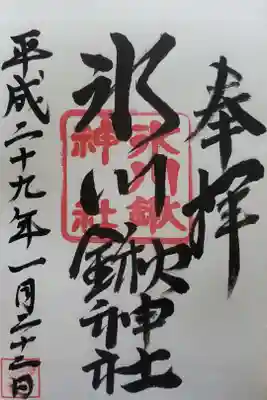 奉拝
氷川鍬神社
氷川鍬
神社
平成二十九年一月二十二日